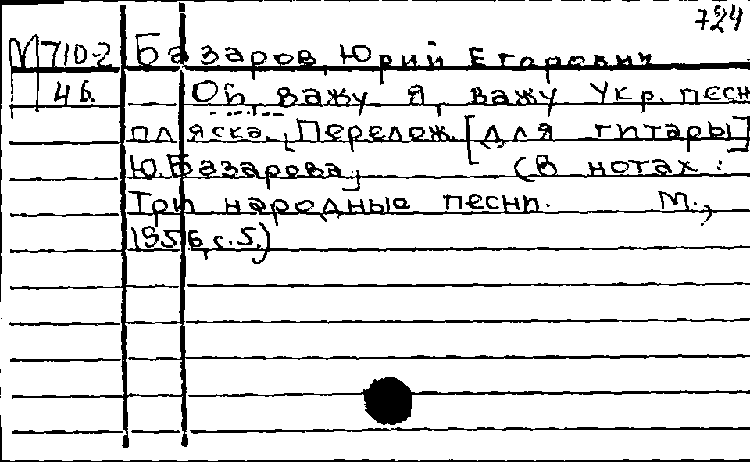 724
М710-2 Базаров, Юрий Егорович
46. Ой, важу я, важу Укр. песн
пляска. [Перелож. [для гитары]
Ю. Базарова] (В нотах:
Три народные песни. М.,
1956, с. 5.)